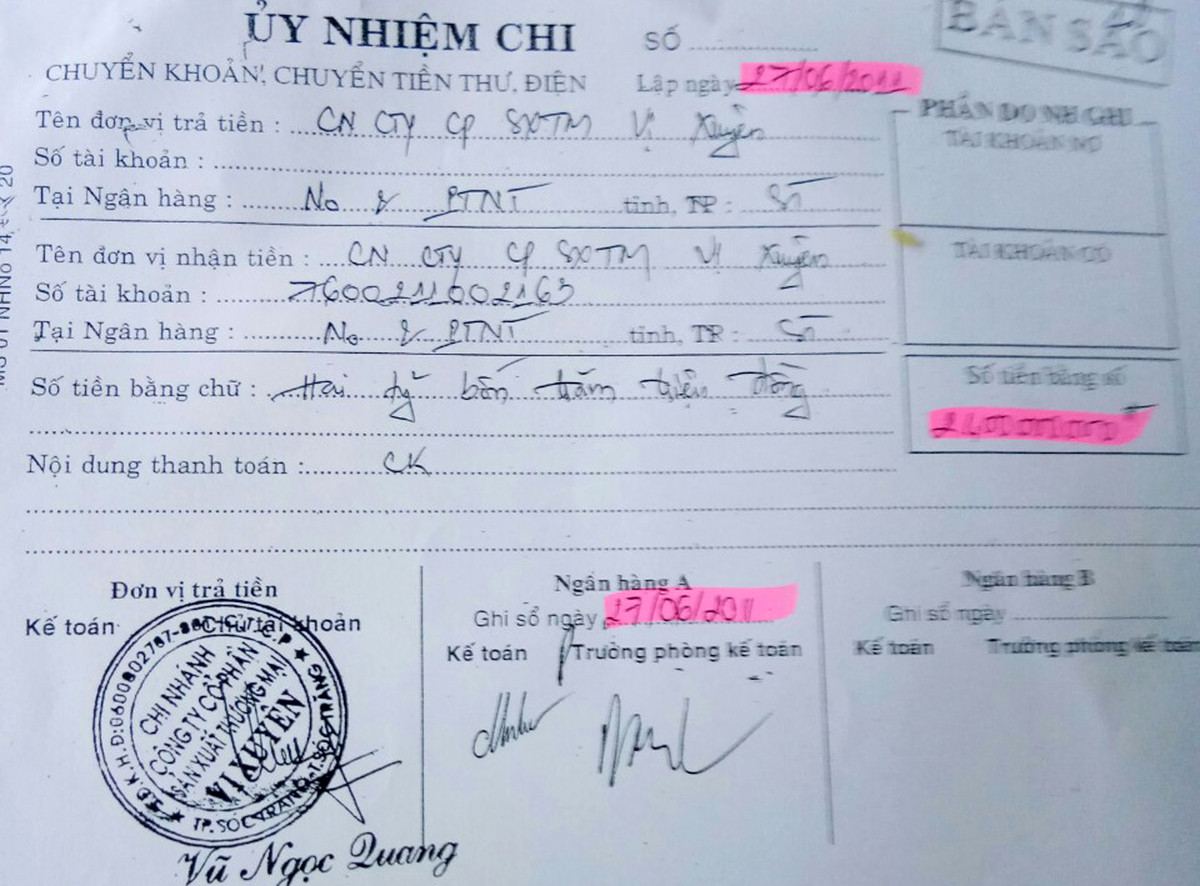 ỦY NHIỆM CHI
SỐ
BẢN SAO
CHUYỂN KHOẢN, CHUYỂN TIỀN THƯ, ĐIỆN
Lập ngày 27/06/2011
PHẦN DO NH GHI
Tên đơn vị trả tiền : CN CTY CP SXTM Vị Xuyên
TÀI KHOẢN NỢ
Số tài khoản :
Tại Ngân hàng : No & PTNT tỉnh, TP : ST
Tên đơn vị nhận tiền : CN CTY CP SXTM Vị Xuyên
TÀI KHOẢN CÓ
Số tài khoản : 7600211002163
Tại Ngân hàng : No & PTNT tỉnh, TP : ST
Số tiền bằng chữ : Hai tỷ bốn trăm triệu đồng
Số tiền bằng số
Nội dung thanh toán : CK
Đơn vị trả tiền
Kế toán Chủ tài khoản
Ngân hàng A
Ghi sổ ngày 27/06/2011
Kế toán Trưởng phòng kế toán
Ngân hàng B
Ghi sổ ngày
Kế toán Trưởng phòng kế toán
CHI NHÁNH
CÔNG TY CỔ PHẦN
SẢN XUẤT THƯƠNG MẠI
VỊ XUYÊN
TP. SÓC TRĂNG - T. SÓC TRĂNG
Vũ Ngọc Quang